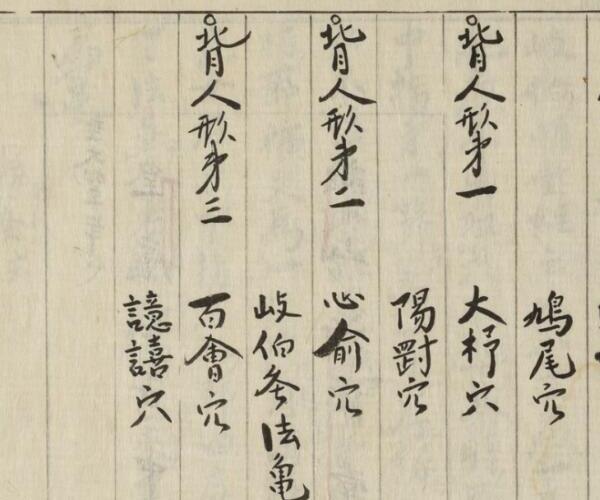 鳩尾穴
○背人形第一 大杼穴
陽 穴
○背人形第二 心俞穴
岐伯灸法亀
○背人形第三 百會穴
譩譆穴